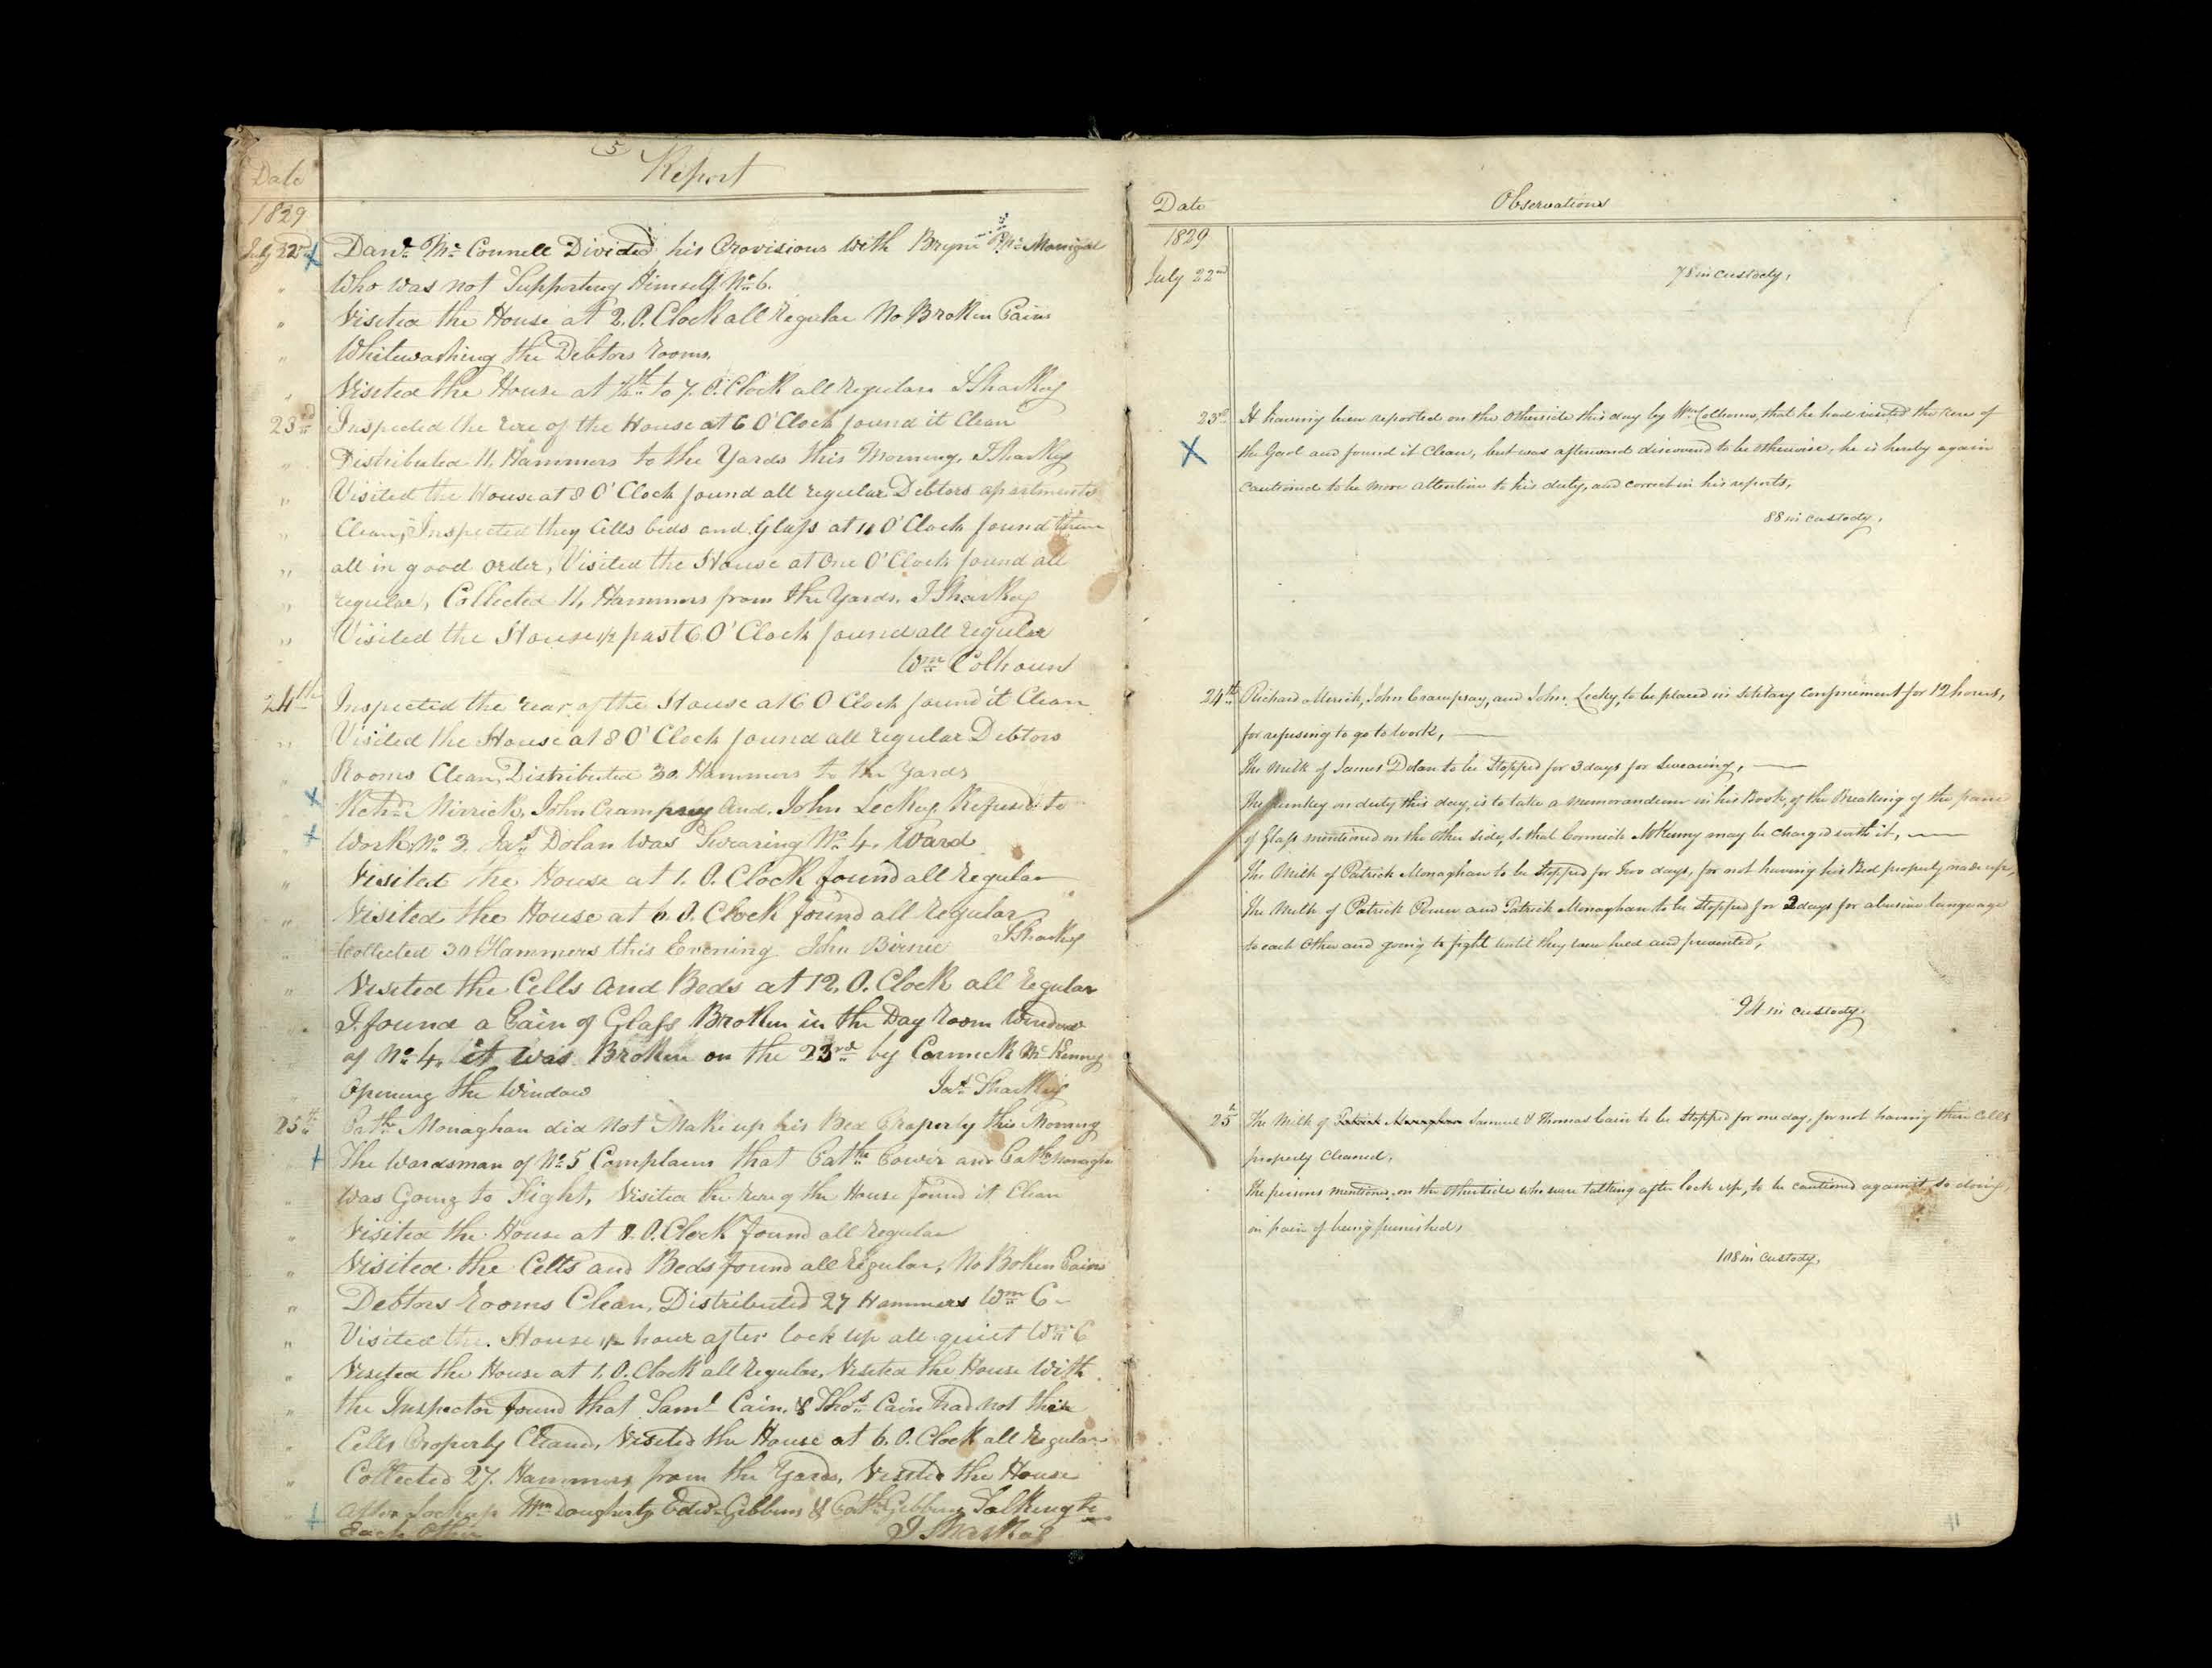 5
Date
Report
1829
July 22nd Danl. McConnell Divided his Provisions with Bryne McMonigal
Who was not Supporting Himself No. 6.
Visited the House at 2. O. Clock all Regular No Broken Pains
Whitewashing the Debtors Rooms.
Visited the House at to 7. O. Clock all Regular J Sharkey
23rd Inspected the rere of the House at 6 O'Clock found it Clean
Distributed 11, Hammers to the Yards this Morning, J Sharkey
Visited the House at 8 O'Clock found all regular Debtors apartments
Clean, Inspected they Cells beds and Glass at 11 O'Clock found them
all in good order, Visited the House at One O'Clock found all
regular, Collected 11, Hammers from the Yards. J Sharkey
Visited the House 1/2 past 6 O'Clock found all regular
Wm Colhoun
24th Inspected the rear of the House at 6 O Clock found it Clean
Visited the House at 8 O'Clock found all regular Debtors
Rooms Clean, Distributed 30 Hammers to the Yards
Richd. Mirrick, John Crampsey and John Leckey Refused to
Work No. 3. Jas. Dolan was Swearing No. 4. Ward
Visited the House at 1. O. Clock found all Regular
Visited the House at 6. O. Clock found all Regular
J Sharkey
Collected 30 Hammers this Evening John Birnie
Visited the Cells and Beds at 12. O. Clock all Regular
I found a Pain of Glass Broken in the Day Room Window
of No. 4. it was Broken on the 23rd by Cormick McKenney
Opening the Window Jas. Sharkey
25th Patk. Monaghan did not Make up his Bed Properly this Morning
The Wardsman of No. 5 Complains that Patk. Power and Patk. Monaghan
Was Going to Fight, Visited the rere of the House found it Clean
Visited the House at 8. O. Clock found all Regular
Visited the Cells and Beds found all Regular, No Boken Pains
Debtors Rooms Clean, Distributed 27 Hammers Wm C
Visited the House 1/2 hour after lock up all quiet Wm C
Visited the House at 1. O. Clock all Regular, Visited the House With
the Inspector found that Saml. Cain & Thos. Cain had not their
Cells Properly Cleand, Visited the House at 6. O. Clock all Regular
Collected 27. Hammers from the Yards, Visited the House
After Lockup Wm Dougherty Edwd. Gibbons & Patk. Gibbons Talking to
Each Other J Sharkey
Date
Observations
1829
July 22nd 78 in custody,
23rd It having been reported on the otherside this day by Wm Colhoun, that he had visited the rere of
the Gaol and found it Clean, but was afterward discovered to be otherwise, he is hereby again
cautioned to be more attentive to his duty, and correct in his reports,
88 in custody,
24th Richard Merick, John Crampsay, and John Lecky, to be placed in solitary confinement for 12 hours,
for refusing to go to work,
The milk of James Dolan to be stopped for 3 days for swearing,
The turnkey on duty this day, is to take a memorandum in his Book, of the Breaking of the pane
of Glass mentioned on the other side, so that Cormick McKenny may be charged with it,
The Milk of Patrick Monaghan to be stopped for two days, for not having his Bed properly made up,
The Milk of Patrick Power and Patrick Monaghan to be stopped for 2 days for abusive language
to each other and going to fight until they were held and prevented,
94 in custody,
25th The Milk of Patrick Monaghan Samuel & Thomas Cain to be stopped for one day, for not having their Cells
properly Cleaned,
The persons mentioned on the otherside who were talking after lock up, to be cautioned against so doing,
on pain of being punished,
108 in custody,
11